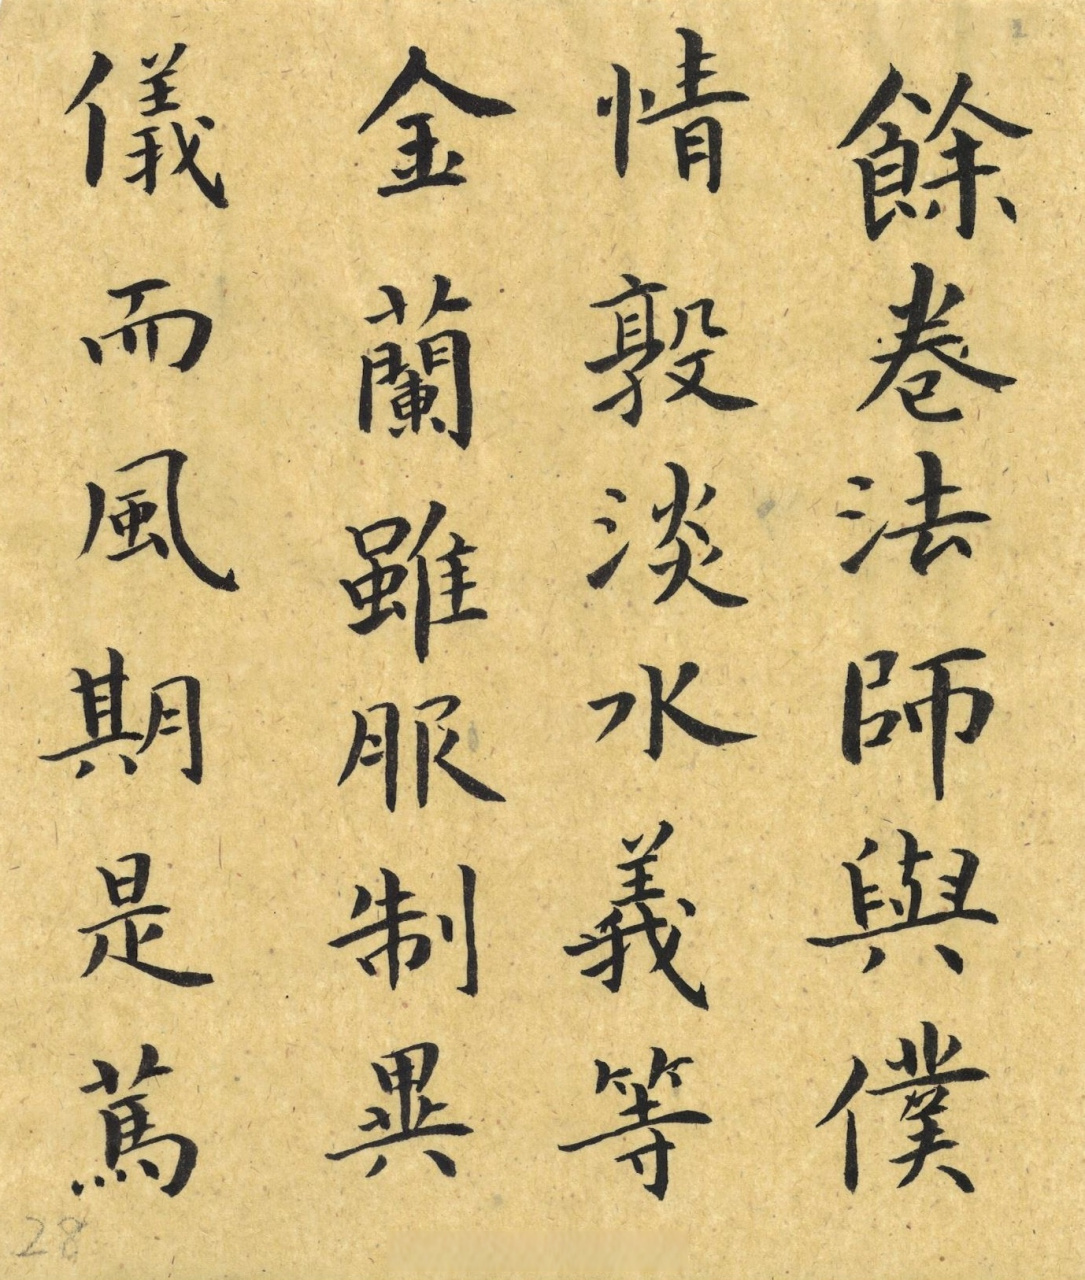 餘卷法師與僕
情敦淡水義等
金蘭雖服制異
儀而風期是篤
28